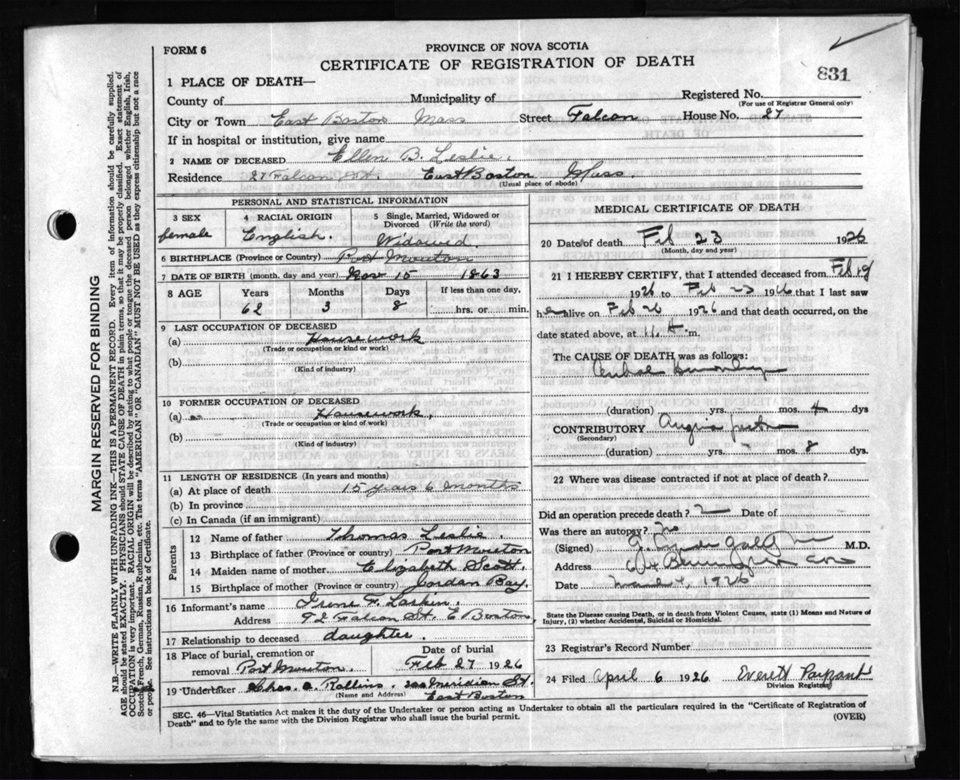 FORM 6
PROVINCE OF NOVA SCOTIA
CERTIFICATE OF REGISTRATION OF DEATH
831
1 PLACE OF DEATH—
County of Municipality of Registered No.
(For use of Registrar General only)
City or Town East Boston Mass Street Falcon House No. 27
If in hospital or institution, give name
2 NAME OF DECEASED Ellen B. Leslie.
Residence 27 Falcon St. East Boston Mass.
(Usual place of abode)
PERSONAL AND STATISTICAL INFORMATION
3 SEX 4 RACIAL ORIGIN 5 Single, Married, Widowed or Divorced (Write the word)
female English. Widowed
6 BIRTHPLACE (Province or Country) Port Mouton
7 DATE OF BIRTH (month, day and year) Nov 15 1863
8 AGE Years Months Days If less than one day,
62 3 8 hrs. or min.
9 LAST OCCUPATION OF DECEASED
(a) Housework
(Trade or occupation or kind or work)
(b)
(Kind of industry)
10 FORMER OCCUPATION OF DECEASED
(a) Housework.
(Trade or occupation or kind of work)
(b)
(Kind of industry)
11 LENGTH OF RESIDENCE (In years and months)
(a) At place of death 15 years 6 months
(b) In province
(c) In Canada (if an immigrant)
Parents
12 Name of father Thomas Leslie.
13 Birthplace of father (Province or country) Port Mouton
14 Maiden name of mother. Elizabeth Scott.
15 Birthplace of mother (Province or country) Jordan Bay.
16 Informant's name Irene F. Larkin.
Address 92 Falcon St. E. Boston
17 Relationship to deceased daughter.
18 Place of burial, cremation or removal Port Mouton. Date of burial Feb 27 1926
19 Undertaker Chas. A. Rollins. 200 Meridian St.
(Name and Address) East Boston
MEDICAL CERTIFICATE OF DEATH
20 Date of death Feb 23 1926
(Month, day and year)
21 I HEREBY CERTIFY, that I attended deceased from Feb 19
1926 to Feb 23 1926 that I last saw
her alive on Feb 1926 and that death occurred, on the
date stated above, at 11 A m.
The CAUSE OF DEATH was as follows:
(duration) yrs. mos. 4 dys
CONTRIBUTORY Angina
(Secondary)
(duration) yrs. mos. 8 dys.
22 Where was disease contracted if not at place of death?
Did an operation precede death? Date of
Was there an autopsy? no
(Signed) M.D.
Address
Date 1926
State the Disease causing Death, or in death from Violent Causes, state (1) Means and Nature of Injury, (2) whether Accidental, Suicidal or Homicidal.
23 Registrar's Record Number
24 Filed April 6 1926 Everett
Division Registrar
SEC. 46—Vital Statistics Act makes it the duty of the Undertaker or person acting as Undertaker to obtain all the particulars required in the "Certificate of Registration of
Death" and to fyle the same with the Division Registrar who shall issue the burial permit.
(OVER)
MARGIN RESERVED FOR BINDING
N.B.—WRITE PLAINLY WITH UNFADING INK—THIS IS A PERMANENT RECORD. Every item of information should be carefully supplied.
AGE should be stated EXACTLY. PHYSICIANS should STATE CAUSE OF DEATH in plain terms, so that it may be properly classified. Exact statement of
OCCUPATION is very important. RACIAL ORIGIN will be described by stating to what people or tongue the deceased person belonged whether English, Irish,
Scotch, French, German, Russian, Ruthenian, etc. The terms "AMERICAN" OR "CANADIAN" MUST NOT BE USED as they express citizenship but not a race
or people. See instructions on back of Certificate.